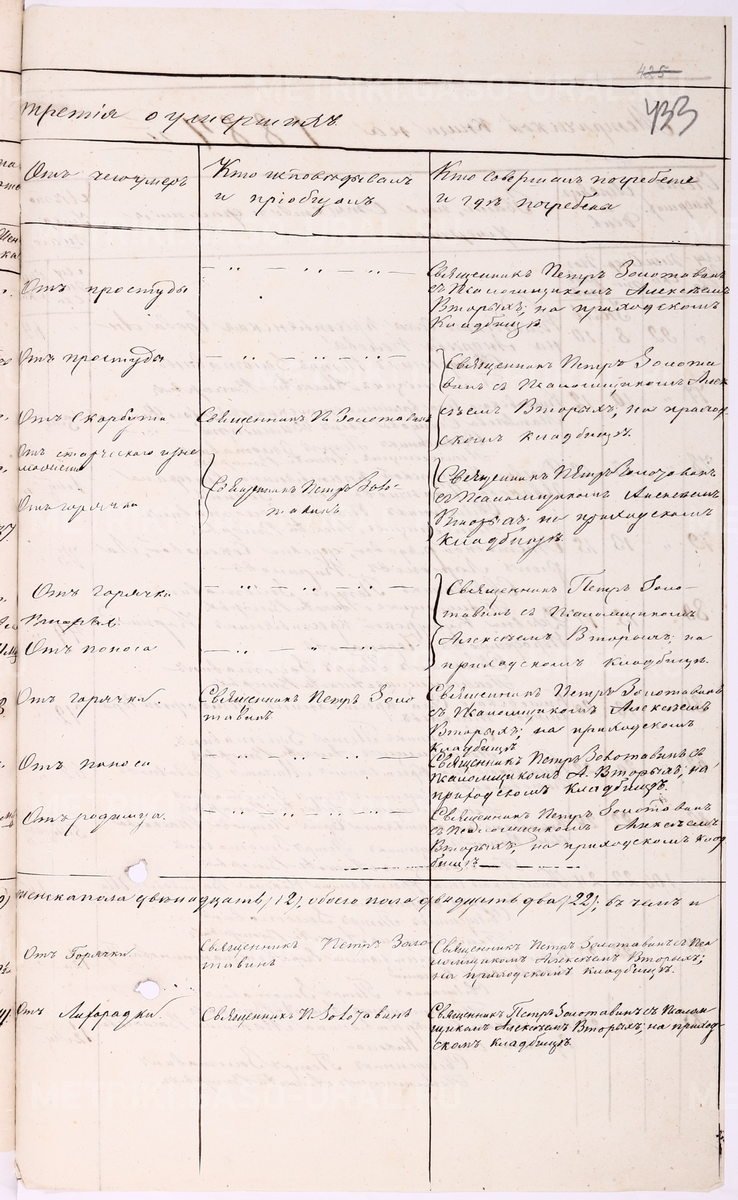 425
433
третія о умершихъ
Отъ чего умеръ
Кто исповѣдывалъ
и пріобщалъ
Кто совершалъ погребеніе
и гдѣ погребены
Отъ простуды
Священникъ Петръ Золотавинъ
съ Псаломщикомъ Алексѣемъ
Вторыхъ; на приходскомъ
Кладбищѣ
Отъ простуды
Священникъ Петръ Золота
винъ съ Псаломщикомъ Алек
сѣемъ Вторыхъ, на приход
скомъ кладбищѣ.
Отъ Скорбута
Священникъ П. Золотавинъ
Отъ старческаго изне
моженія
Отъ горячки
Священникъ Петръ Золо-
тавинъ
Священникъ Петръ Золотавинъ
съ Псаломщикомъ Алексѣемъ
Вторыхъ на приходскомъ
кладбищѣ
Отъ горячки
Вторыхъ.
Отъ поноса
Священникъ Петръ Золо-
тавинъ съ Псаломщикомъ
Алексѣемъ Вторыхъ; на
приходскомъ кладбищѣ.
Отъ горячки.
Священникъ Петръ Золо
тавинъ
Священникъ Петръ Золотавинъ
съ Псаломщикомъ Алексѣемъ
Вторыхъ; на приходскомъ
кладбищѣ
Отъ поноса
Священникъ Петръ Золотавинъ съ
псаломщикомъ А. Вторыхъ; на
приходскомъ кладбищѣ.
Отъ родимца.
Священникъ Петръ Золотавинъ
съ Псаломщикомъ Алексѣемъ
Вторыхъ; на приходскомъ клад
бищѣ
женска пола двѣнадцать (12), обоего пола двадцать два (22); въ чемъ и
Отъ Горячки.
Священникъ Петръ Золо
тавинъ
Священникъ Петръ Золотавинъ съ Пса
ломщикомъ Алексѣемъ Вторыхъ;
на приходскомъ кладбищѣ.
Отъ Лихорадки.
Священникъ П. Золотавинъ
Священникъ Петръ Золотавинъ съ Псалом
щикомъ Алексѣемъ Вторыхъ, на приход
скомъ кладбищѣ.